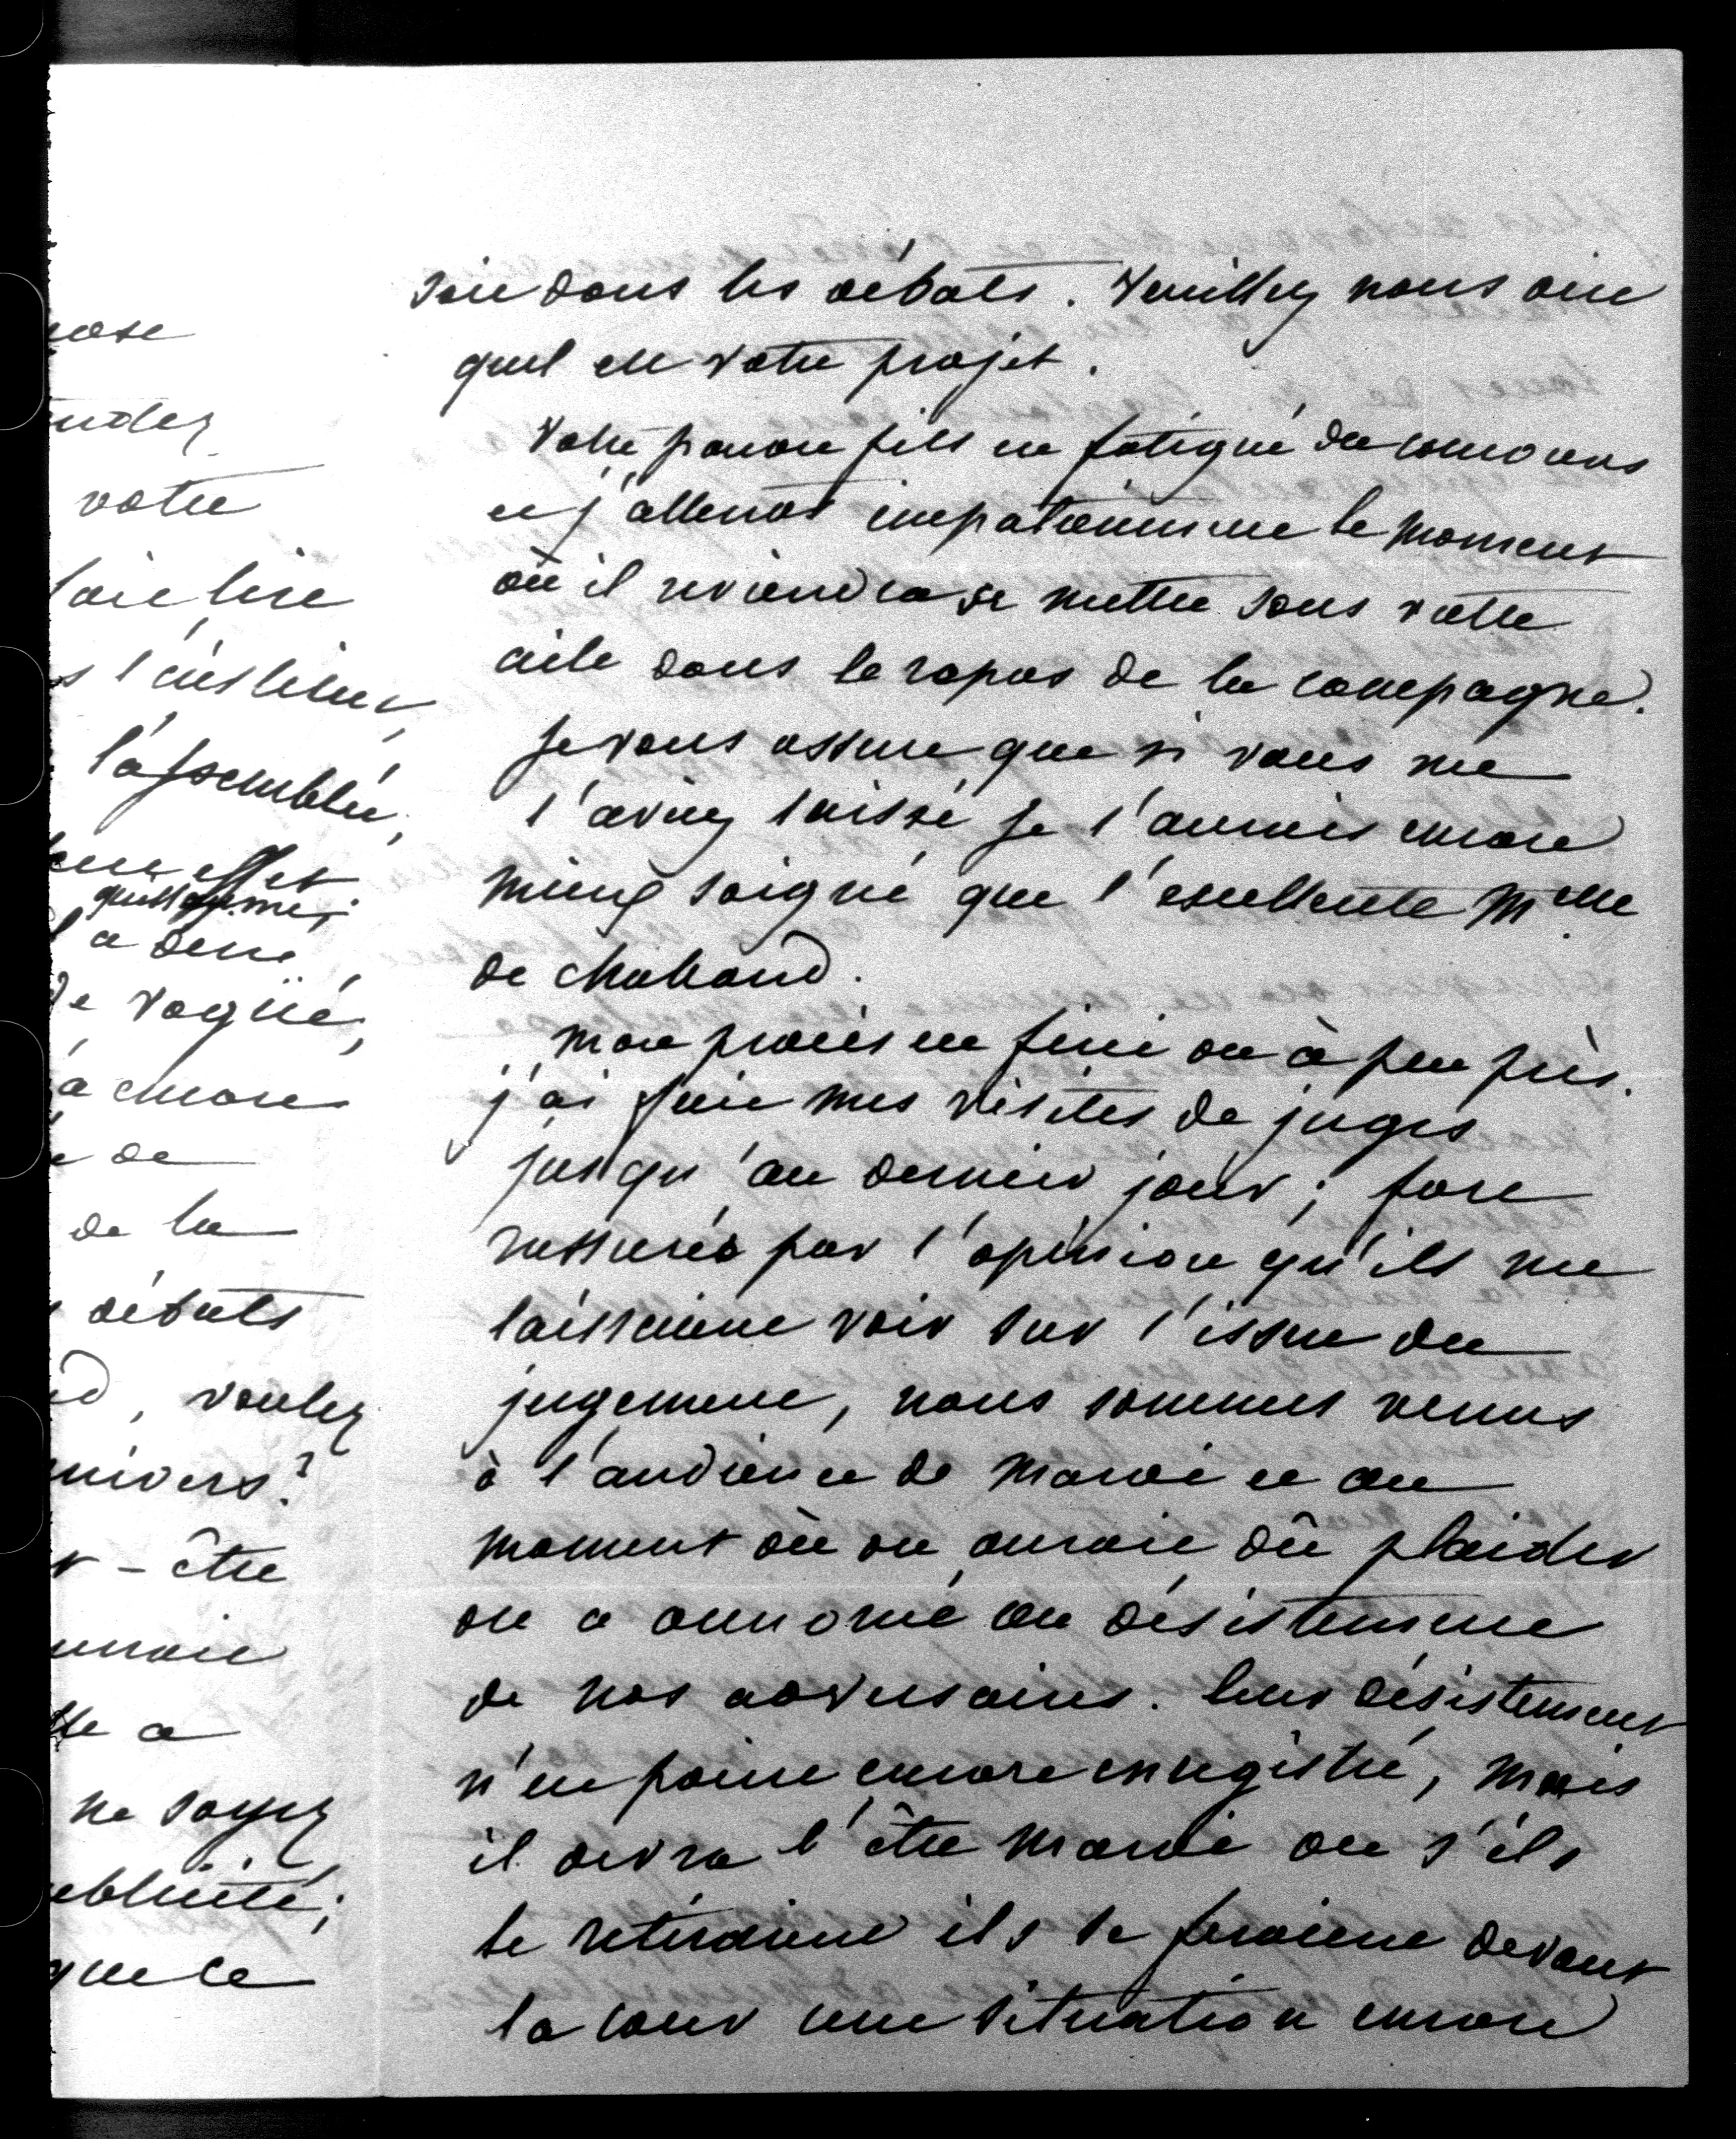 ose
votre
l'assemblée,
effet
de Vogüé,
a encore
de
de la
débats
, voulez
univers?
- être
a
ne soyez
que ce
soit dans les débats. Veuillez nous dire
quel est votre projet.
Votre pauvre fils est fatigué du concours
et j'attends impatiemment le moment
où il reviendra se mettre sous votre
aile dans le repos de la campagne.
Je vous assure que si vous me
l'aviez laissé je l'aurais encore
mieux soigné que l'excellente Melle
de Chabaud.
Mon procès est fini ou à peu près.
j'ai fait mes visites de juges
jusqu'au dernier jour; fort
rassurés par l'opinion qu'ils me
laissaient voir sur l'issue du
jugement, nous sommes venus
à l'audience de mardi et au
moment où on aurait dû plaider
on a annoncé un désistement
de nos adversaires. leur désistement
n'est point encore enregistré, mais
il devra l'être mardi ou s'ils
le retiraient ils se feraient devant
la cour une situation encore